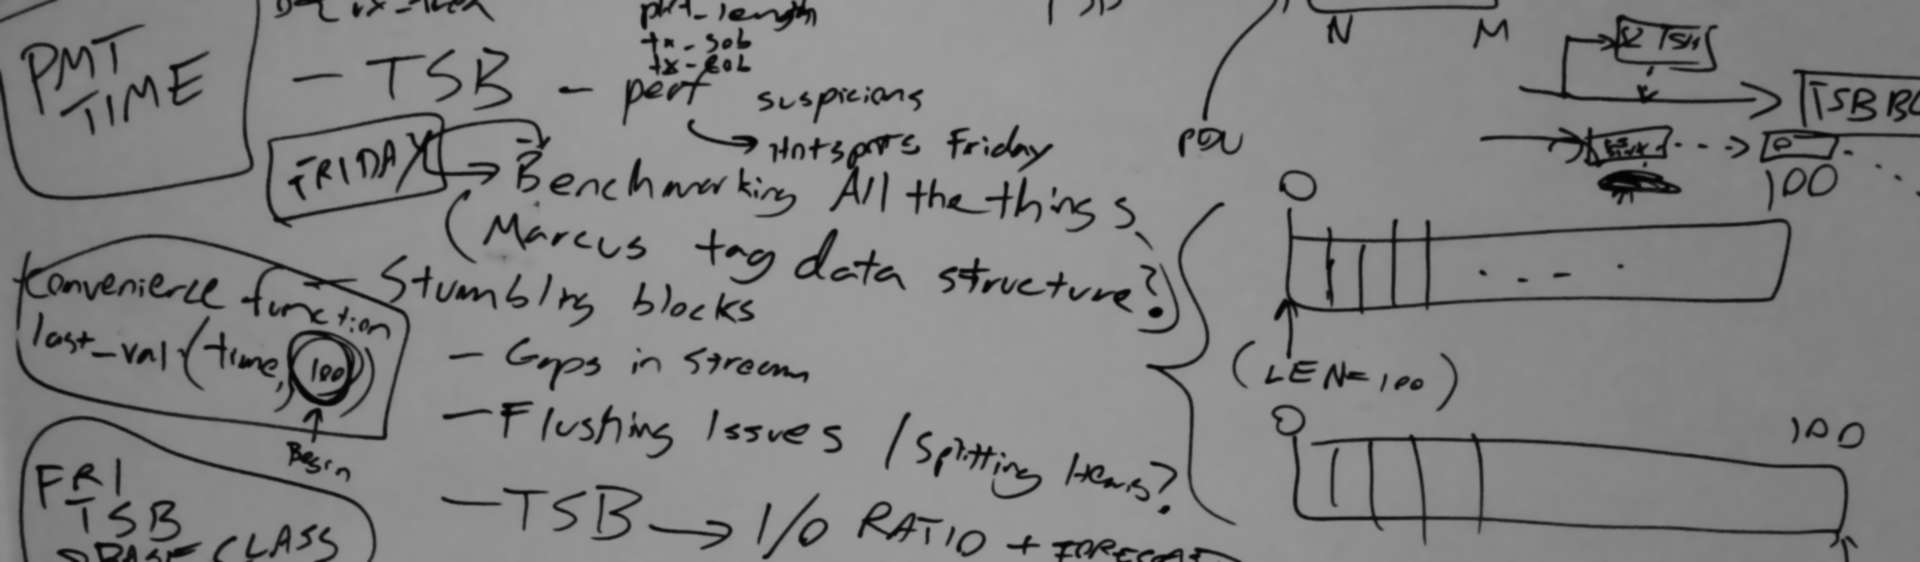 PMT
TIME
pkt_length
tx-sob
tx-eob
- TSB - perf suspicions
Hotspots Friday
FRIDAY
Benchmarking All the things
(Marcus tag data structure?)
Convenience function
last_val (time, 100)
Begin
- Stumbling blocks
- Gaps in stream
- Flushing Issues / Splitting Items?
- TSB → I/O RATIO + FORECAST
FRI
TSB
BASE CLASS
N M
PDU
TSB
100
0
(LEN=100)
0 100